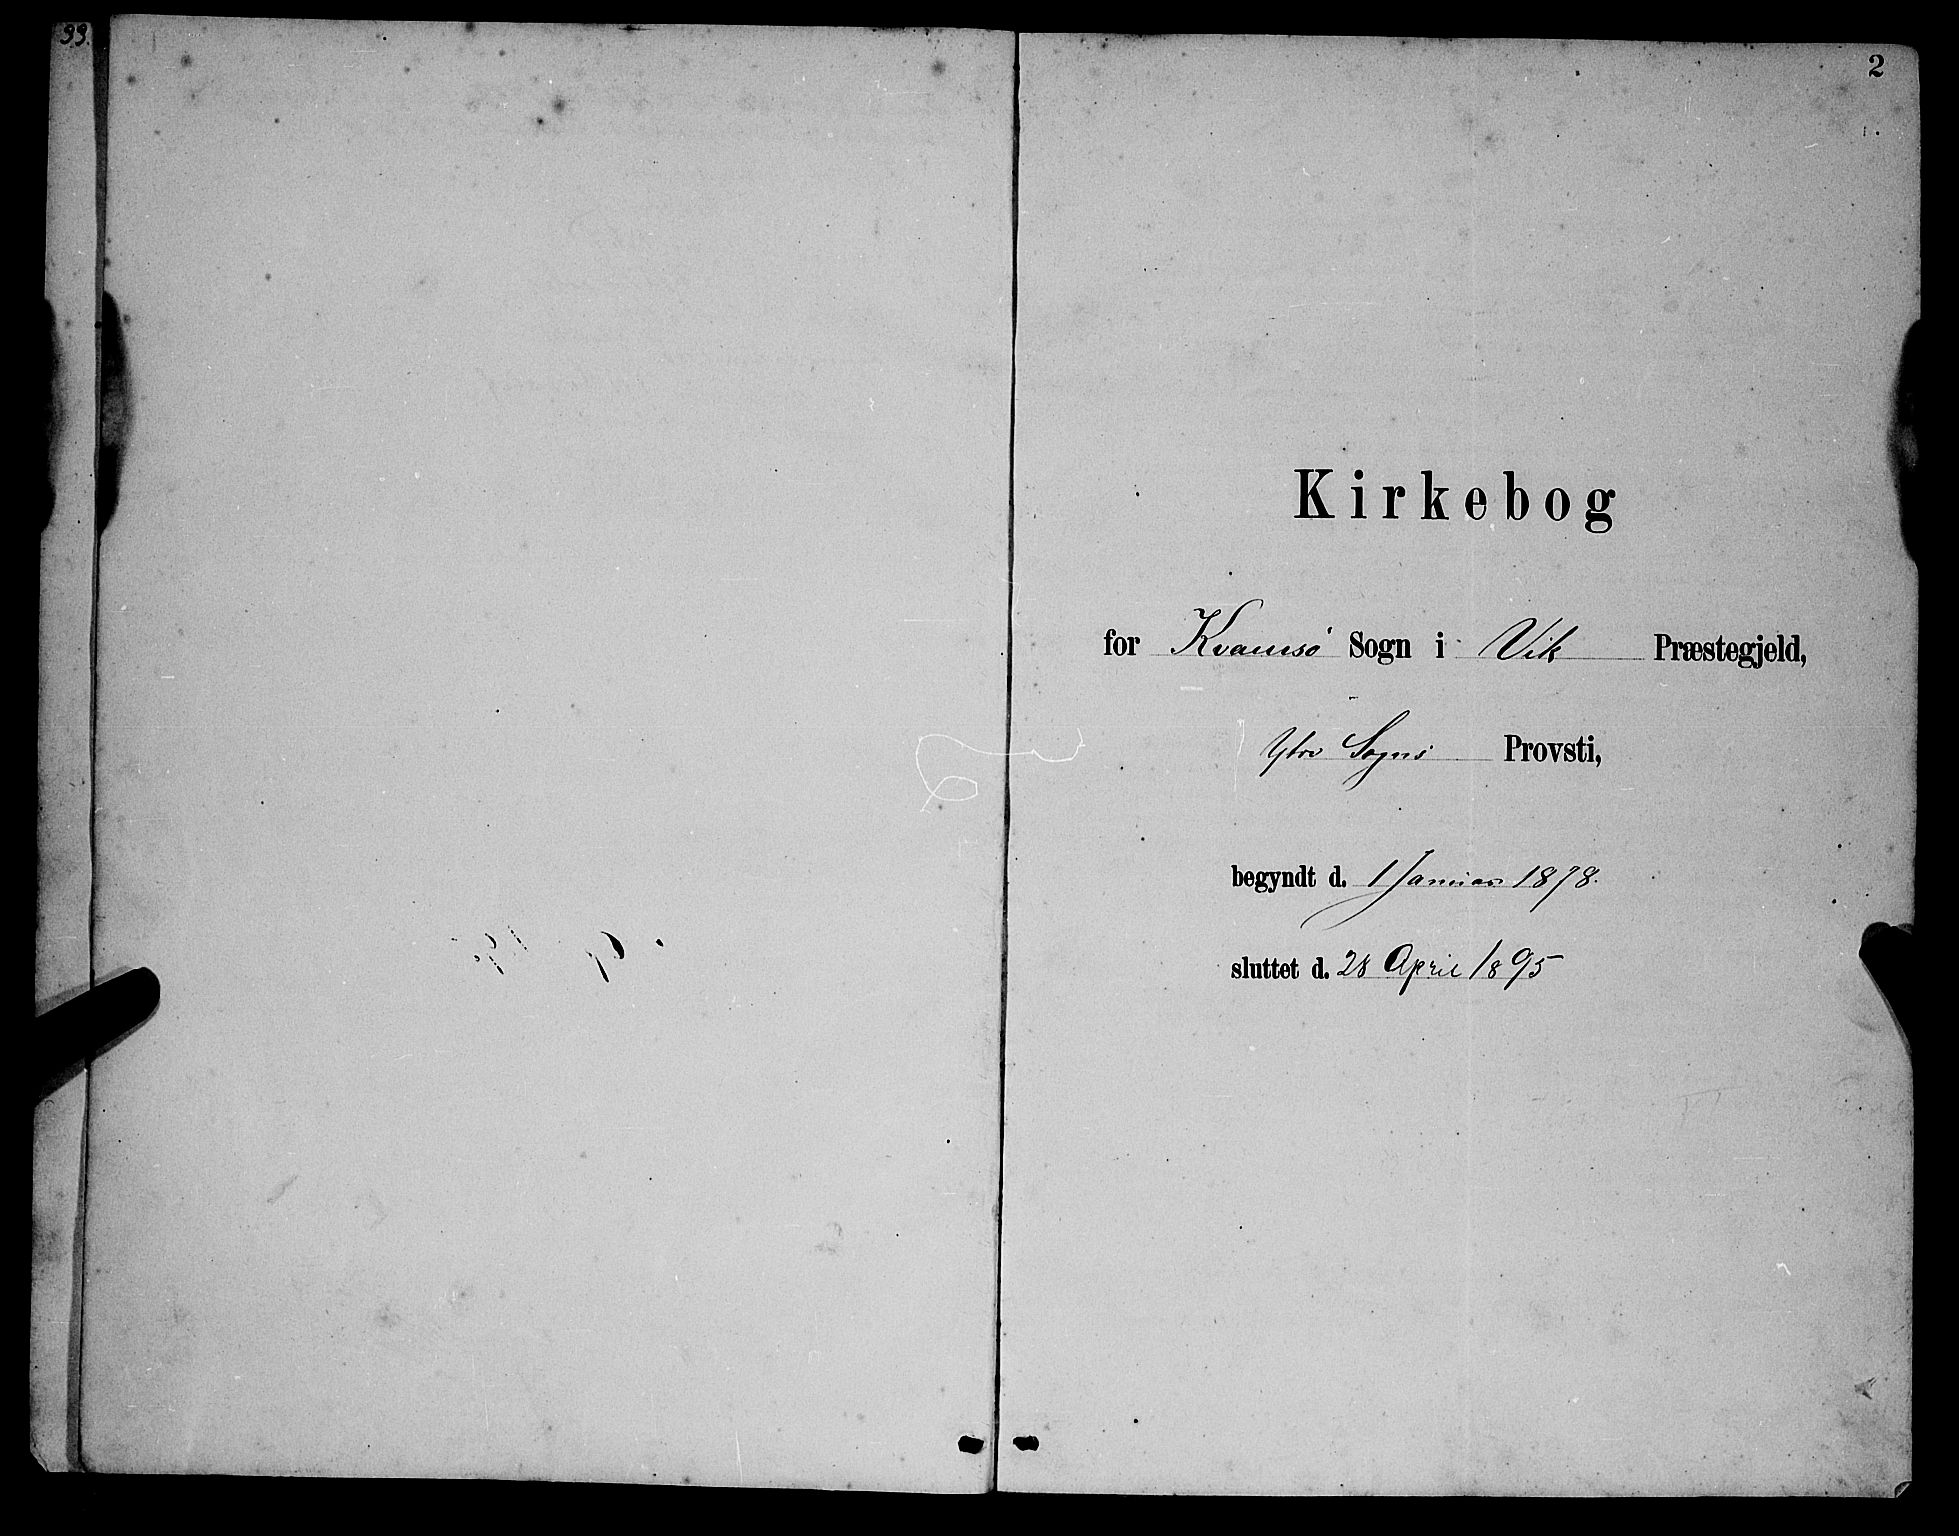 33.
2
Kirkebog
for Kvamsö Sogn i Vik Præstegjeld,
Ytre Sogns Provsti,
begyndt d. 1 Januar 1878.
sluttet d. 28 April 1895